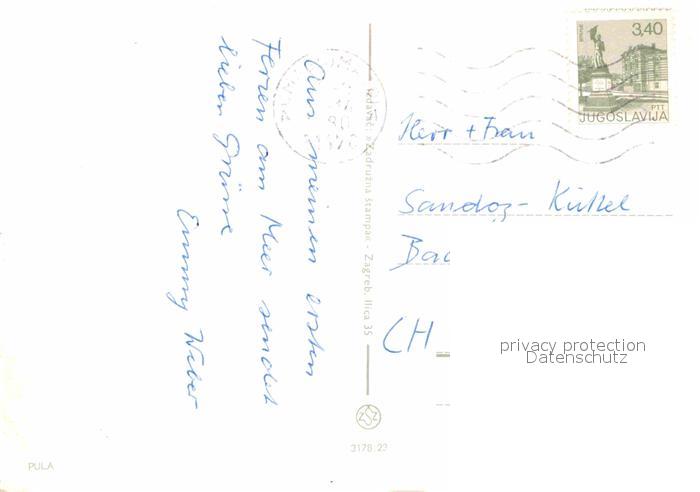 Aus meinen ersten
Ferien am Meer sendet
lieben Grüsse
Emmy Weber
Izdavač: »Zadružna štampa« - Zagreb, Ilica 35
3,40
PTT
JUGOSLAVIJA
Herr + Frau
Sandoz - Küttel
CH
privacy protection
Datenschutz
3178/23
PULA